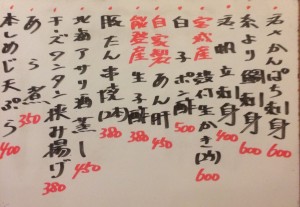 活〆かんぱち刺身 600
糸より鯛刺身 600
活〆帆立刺身 400
宮城産 殻付生かき(1ヶ) 600
白子ポン酢 500
自家製 あん肝 450
能登産 生子酢 380
豚たん串焼(2本) 380
北海アサリ酒蒸し 450
チーズタンタン挟み揚げ 380
あら煮 350
本しめじ天ぷら 400